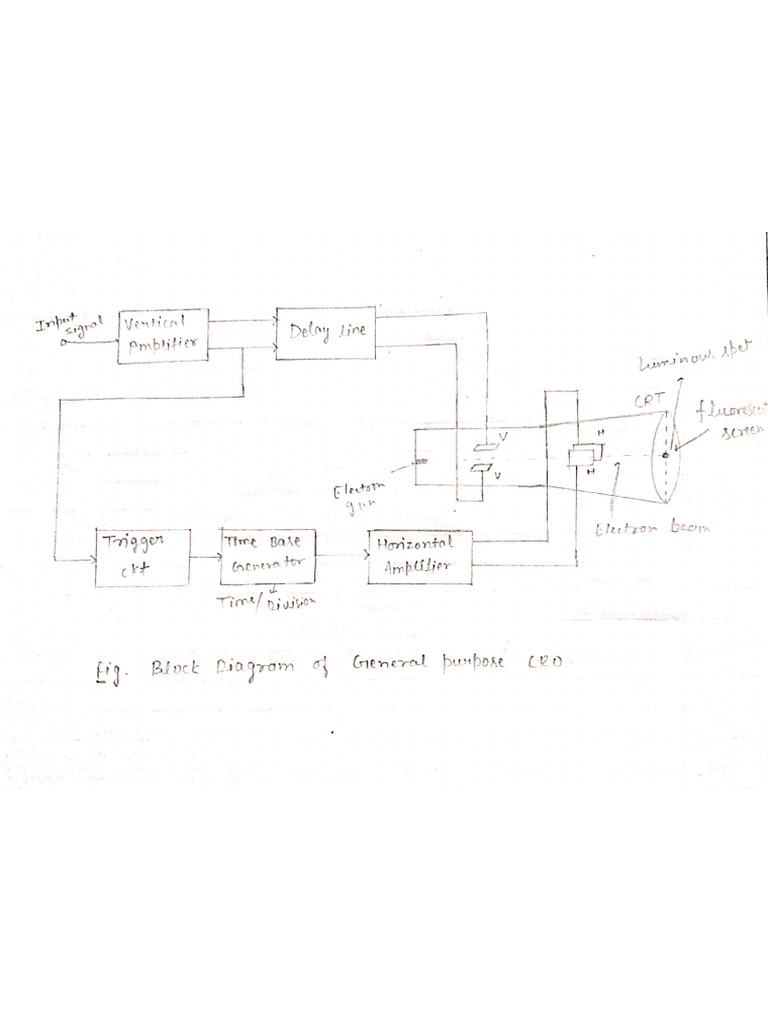 Input
signal
Vertical
Amplifier
Delay line
Luminous spot
CRT
fluorescent
screen
V
V
H
H
Electron
gun
Electron beam
Trigger
ckt
Time Base
Generator
Horizontal
Amplifier
Time/Division
Fig. Block Diagram of General purpose CRO.